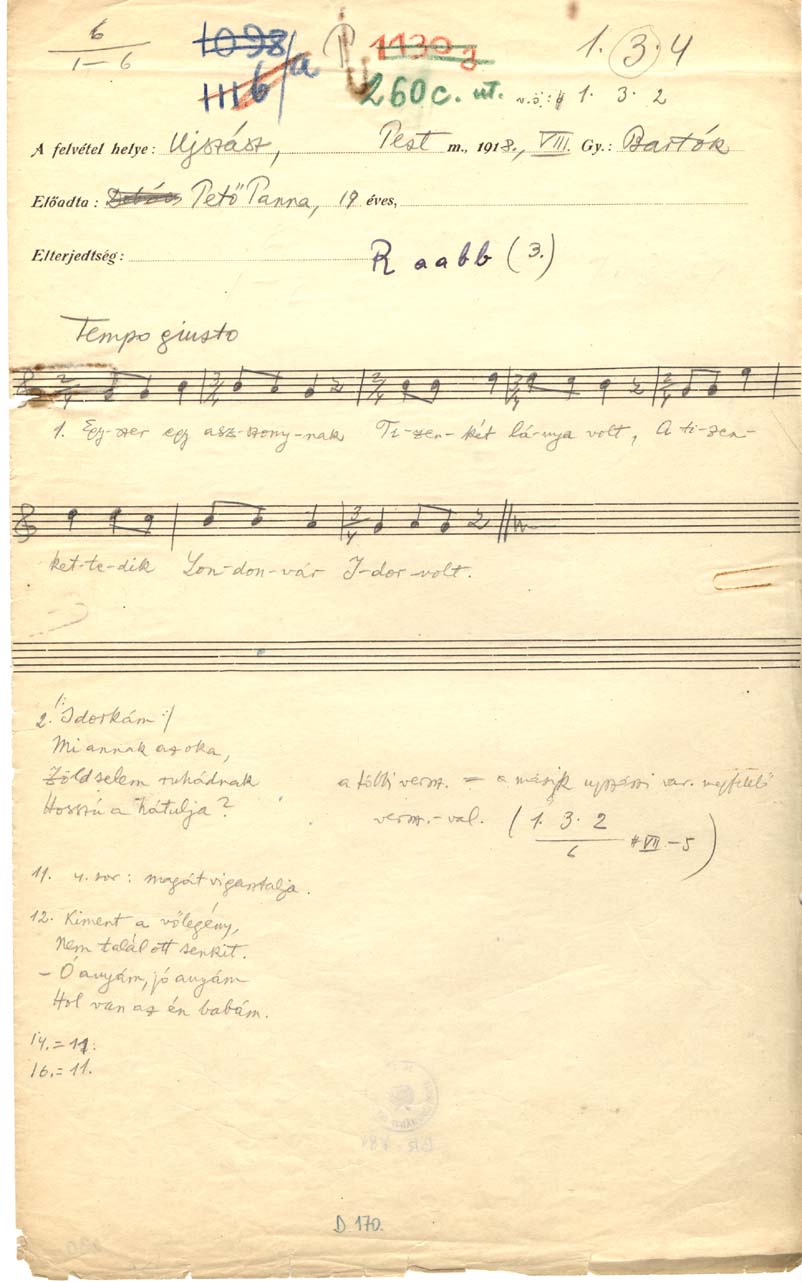 6
1–6
1098
P
1130 g
1. 3. 4
1116/a
260 c. ut.
v.ö.: 1. 3. 2
A felvétel helye: Ujszász, Pest m., 1918., VIII. Gy.: Bartók
Előadta: Pető Panna, 19 éves,
Elterjedtség:
R aabb (3.)
Tempo giusto
2/4 3/4 2/4 3/4 2/4
1. Egy-szer egy asz-szony-nak Ti-zen-két lá-nya volt, A ti-zen-
3/4
ket-te-dik Lon-don-vár I-dor-volt.
2. /: Idorkám :/
Mi annak az oka,
Zöld selem ruhádnak
Hosszú a hátulja?
a többi versz. = a másik ujszászi var. megfelelő
versz.-val. (1. 3. 2
6 # VII – 5)
11. 4. sor: magát vigasztalja.
12. Kiment a vőlegény,
Nem talál ott senkit.
– Ó anyám, jó anyám
Hol van az én babám.
14. = 11.
16. = 11.
D 170.